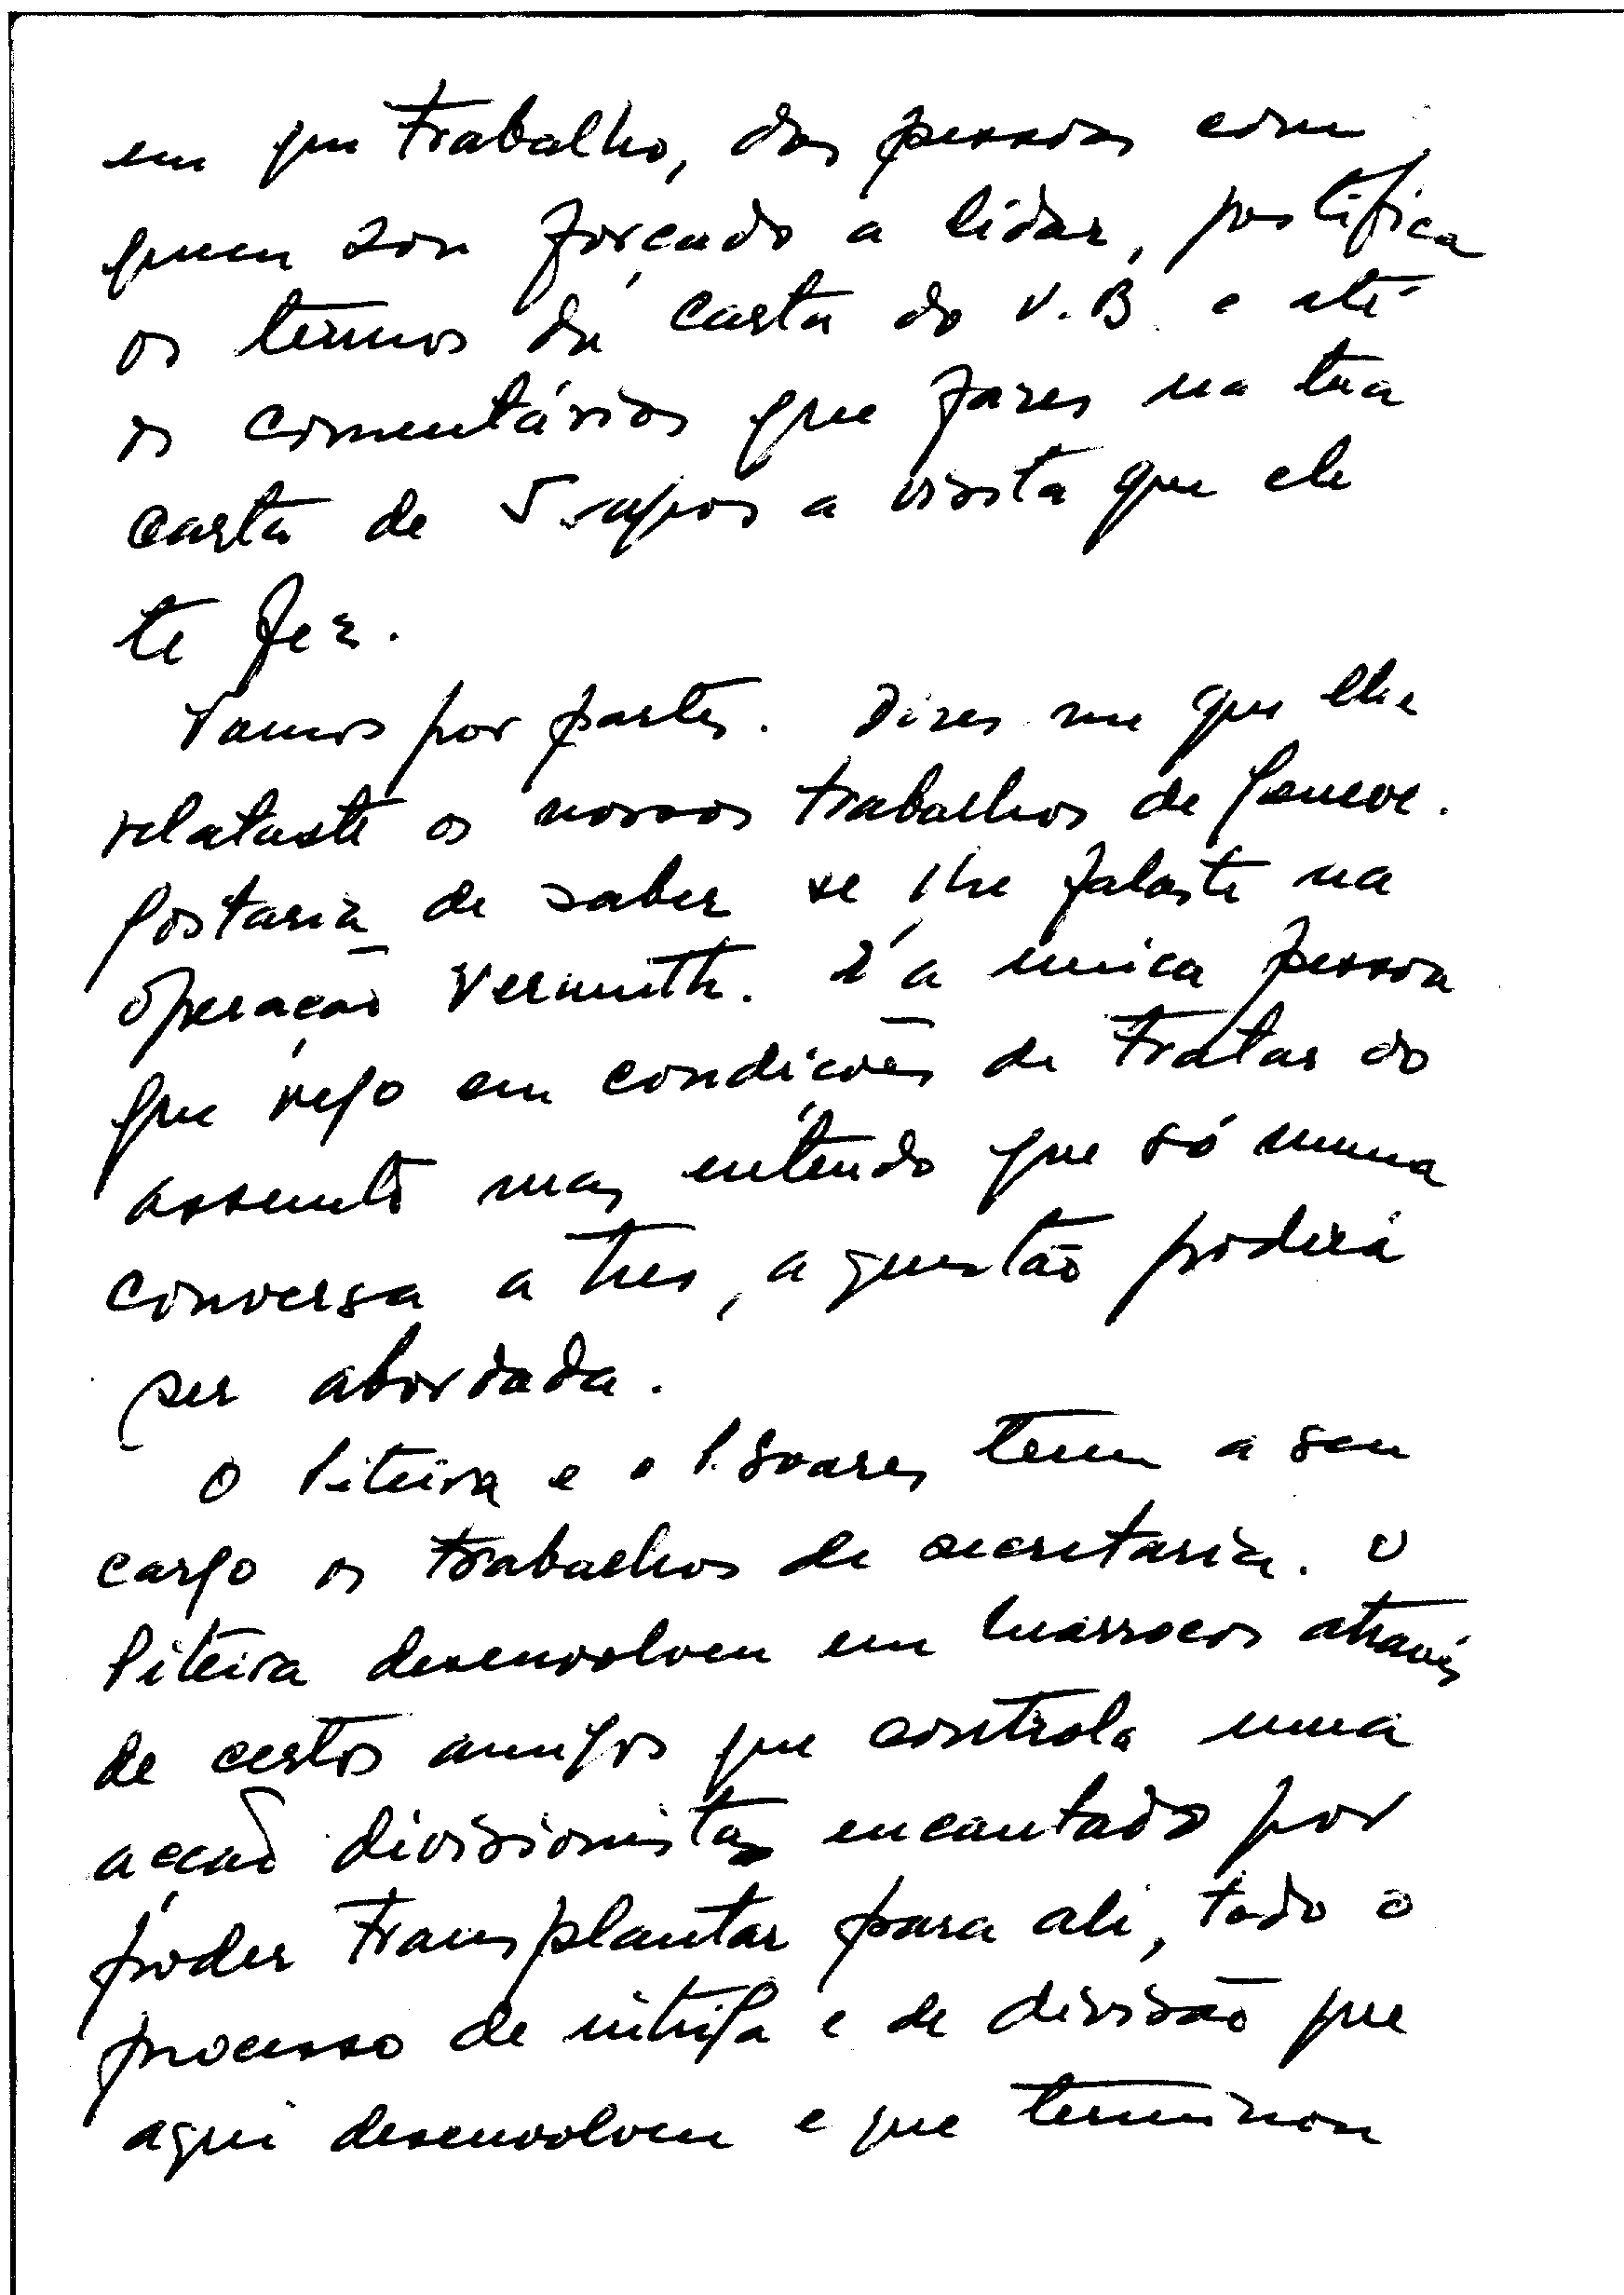 em que trabalho, das pessoas com
quem sou forçado a lidar, justifica
os termos da carta do V.B. e até
os comentários que fazes na tua
carta de 5 após a visita que ele
te fez.
Vamos por partes. Dizes me que lhe
relataste os nossos trabalhos de Geneve.
Gostaria de saber se lhe falaste na
operação Vermuth. É a unica pessoa
que vejo em condições de tratar do
assunto mas entendo que só numa
conversa a tres, a questão poderá
ser abordada.
O Piteira e o P. Soares tem a seu
cargo os trabalhos de secretaria. O
Piteira desenvolveu em Marrocos através
de certos amigos que controla uma
acção divisionista encantado por
poder transplantar para ali, todo o
processo de intriga e de divisão que
aqui desenvolveu e que terminou